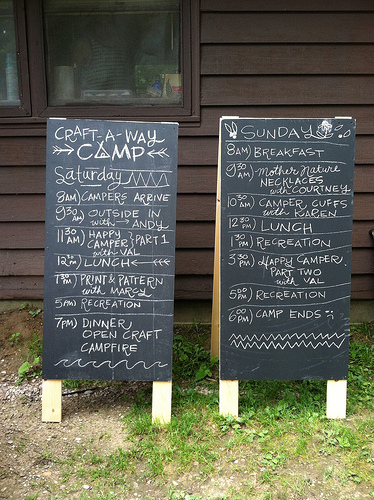 CRAFT-A-WAY
CAMP
Saturday
8AM) CAMPERS ARRIVE
9:30 AM) OUTSIDE IN
with ANDY
11:30 AM) HAPPY CAMPER PART 1
with VAL
12:30 PM) LUNCH
1:30 PM) PRINT & PATTERN
with MARCY
5PM) RECREATION
7PM) DINNER
OPEN CRAFT
CAMPFIRE
SUNDAY
8AM) BREAKFAST
9:30 AM) Mother Nature
NECKLACES
with COURTNEY
10:30 AM) CAMPER CUFFS
with KAREN
12:30 PM) LUNCH
1:30 PM) RECREATION
3:30 PM) Happy CAMPER,
PART TWO
with VAL
5:00 PM) RECREATION
6:00 PM) CAMP ENDS :;